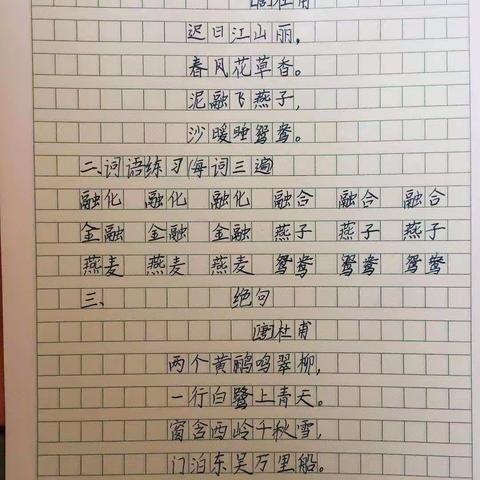 [唐]杜甫
迟日江山丽，
春风花草香。
泥融飞燕子，
沙暖睡鸳鸯。
二、词语练习(每词三遍)
融化 融化 融化 融合 融合 融合
金融 金融 金融 燕子 燕子 燕子
燕麦 燕麦 燕麦 鸳鸯 鸳鸯 鸳鸯
三、 绝句
[唐]杜甫
两个黄鹂鸣翠柳，
一行白鹭上青天。
窗含西岭千秋雪，
门泊东吴万里船。